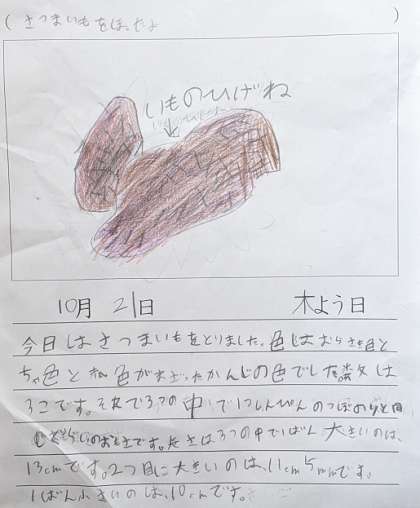 (さつまいもをほったよ)
いものひげね
10月 21日 木よう日
今日はさつまいもをとりました。色はむらさき色と
ちゃ色と 色がまざったかんじの色でした。数は
3こです。それで3つの中で
大きさは3つの中で1ばん大きいのは、
13cmです。2つ目に大きいのは、11cm5mmです。
1ばん小さいのは、10cmです。